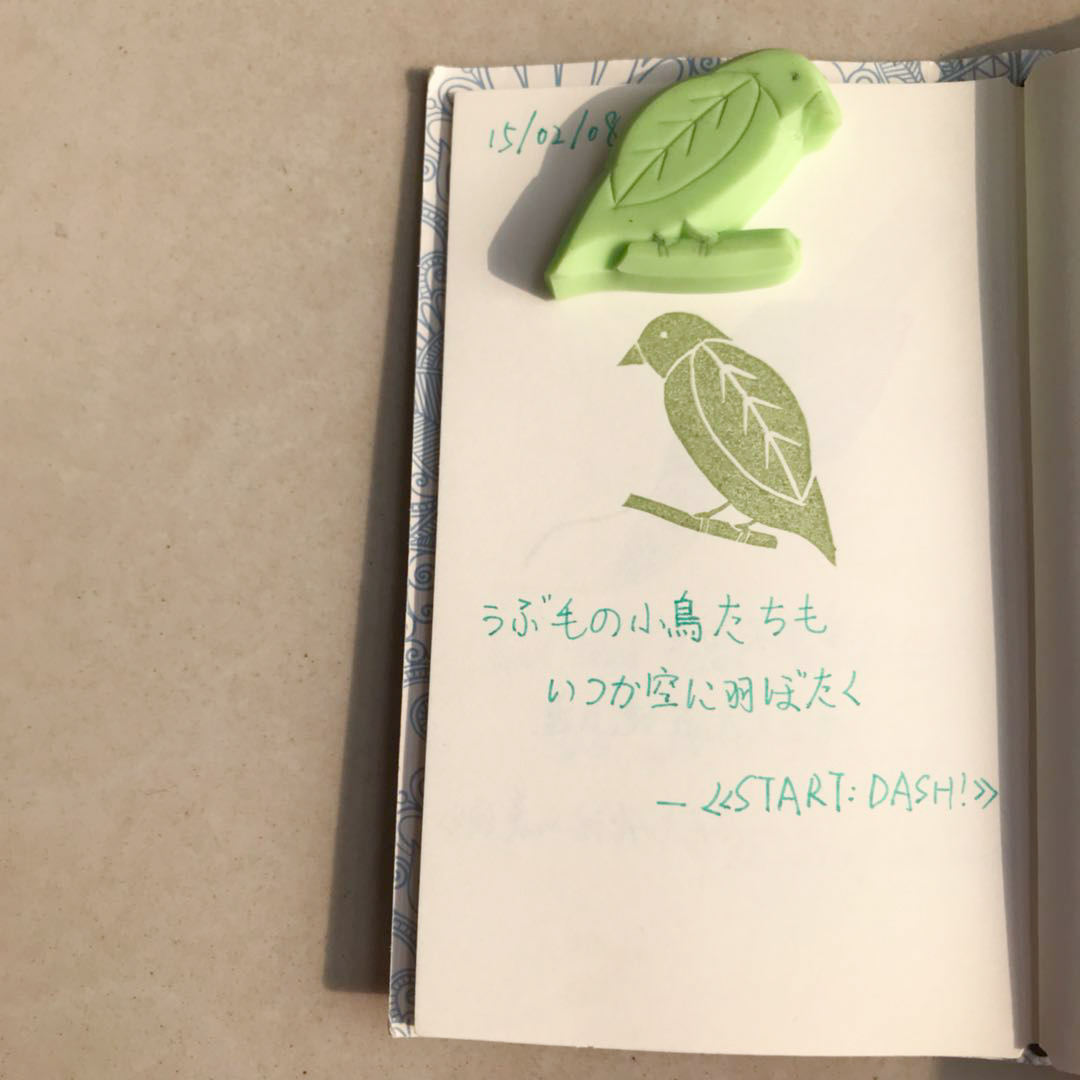 15/02/08
うぶ毛の小鳥たちも
いつか空に羽ばたく
— 《START:DASH!》